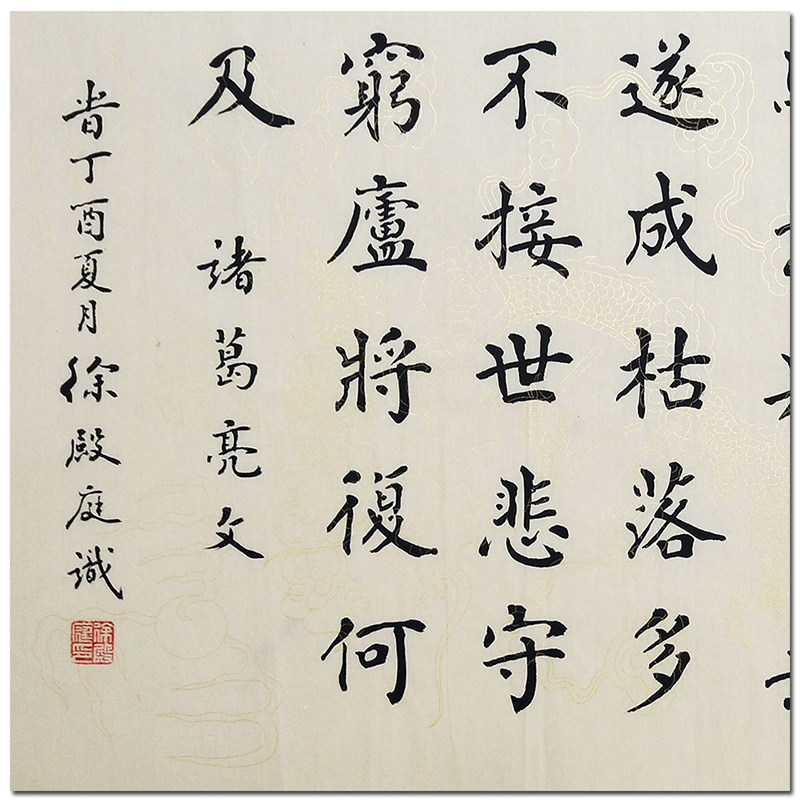 遂成枯落多
不接世悲守
窮廬將復何
及 諸葛亮文
旹丁酉夏月徐殿庭識